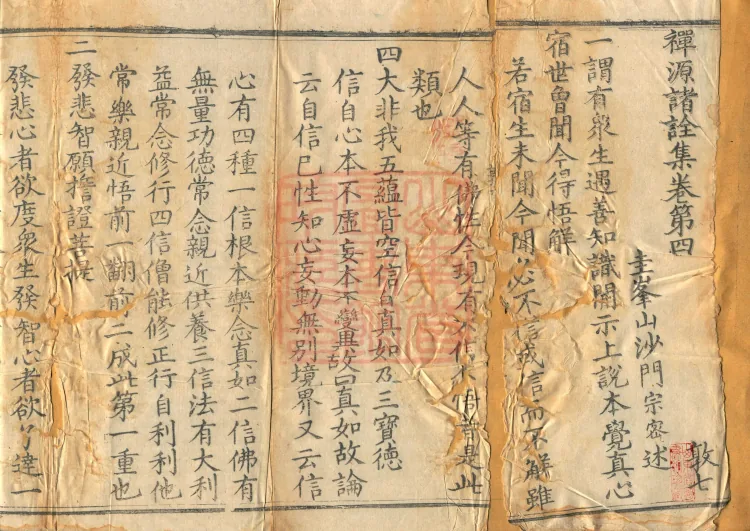 禪源諸詮集卷第四
圭峯山沙門宗密述
敦七
一謂有衆生遇善知識開示上說本覺真心
宿世曾聞今得悟解
若宿生未聞今聞必不信或信而不解雖
人人等有佛性今現有不信不悟者是此
類也
四大非我五蘊皆空信自真如及三寶德
信自心本不虛妄本不變異故曰真如故論
云自信己性知心妄動無別境界又云信
心有四種一信根本樂念真如二信佛有
無量功德常念親近供養三信法有大利
益常念修行四信僧能修正行自利利他
常樂親近悟前一翻前二成此第一重也
二發悲智願擔證菩提
發悲心者欲度衆生發智心者欲了達一